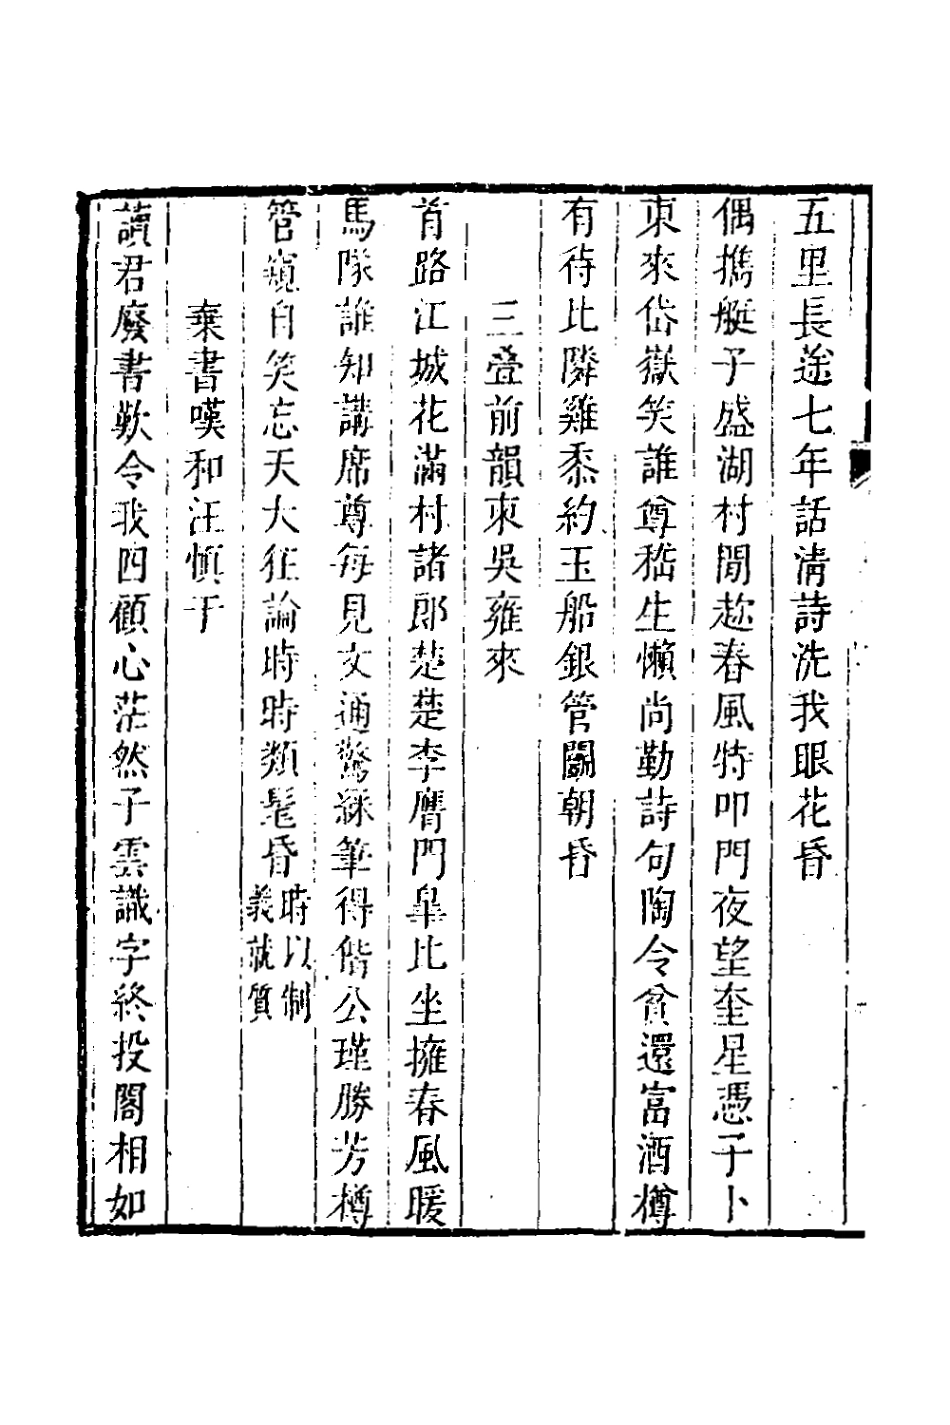 五里長途七年話淸詩洗我眼花昏
偶攜艇子盛湖村聞趂春風特叩門夜望奎星憑子卜
東來岱嶽笑誰尊嵇生懶尚勤詩句陶令貧還富酒樽
有待比隣雞黍約玉船銀管鬭朝昏
三疊前韻柬吳雍來
首路江城花滿村諸郞楚楚李膺門臯比坐擁春風暖
馬隊誰知講席尊每見文通驚綵筆得偕公瑾勝芳樽
管窺自笑忘天大狂論時時類髦昏時以制義就質
棄書嘆和汪愼于
讀君廢書歎令我四顧心茫然子雲識字終投閣相如